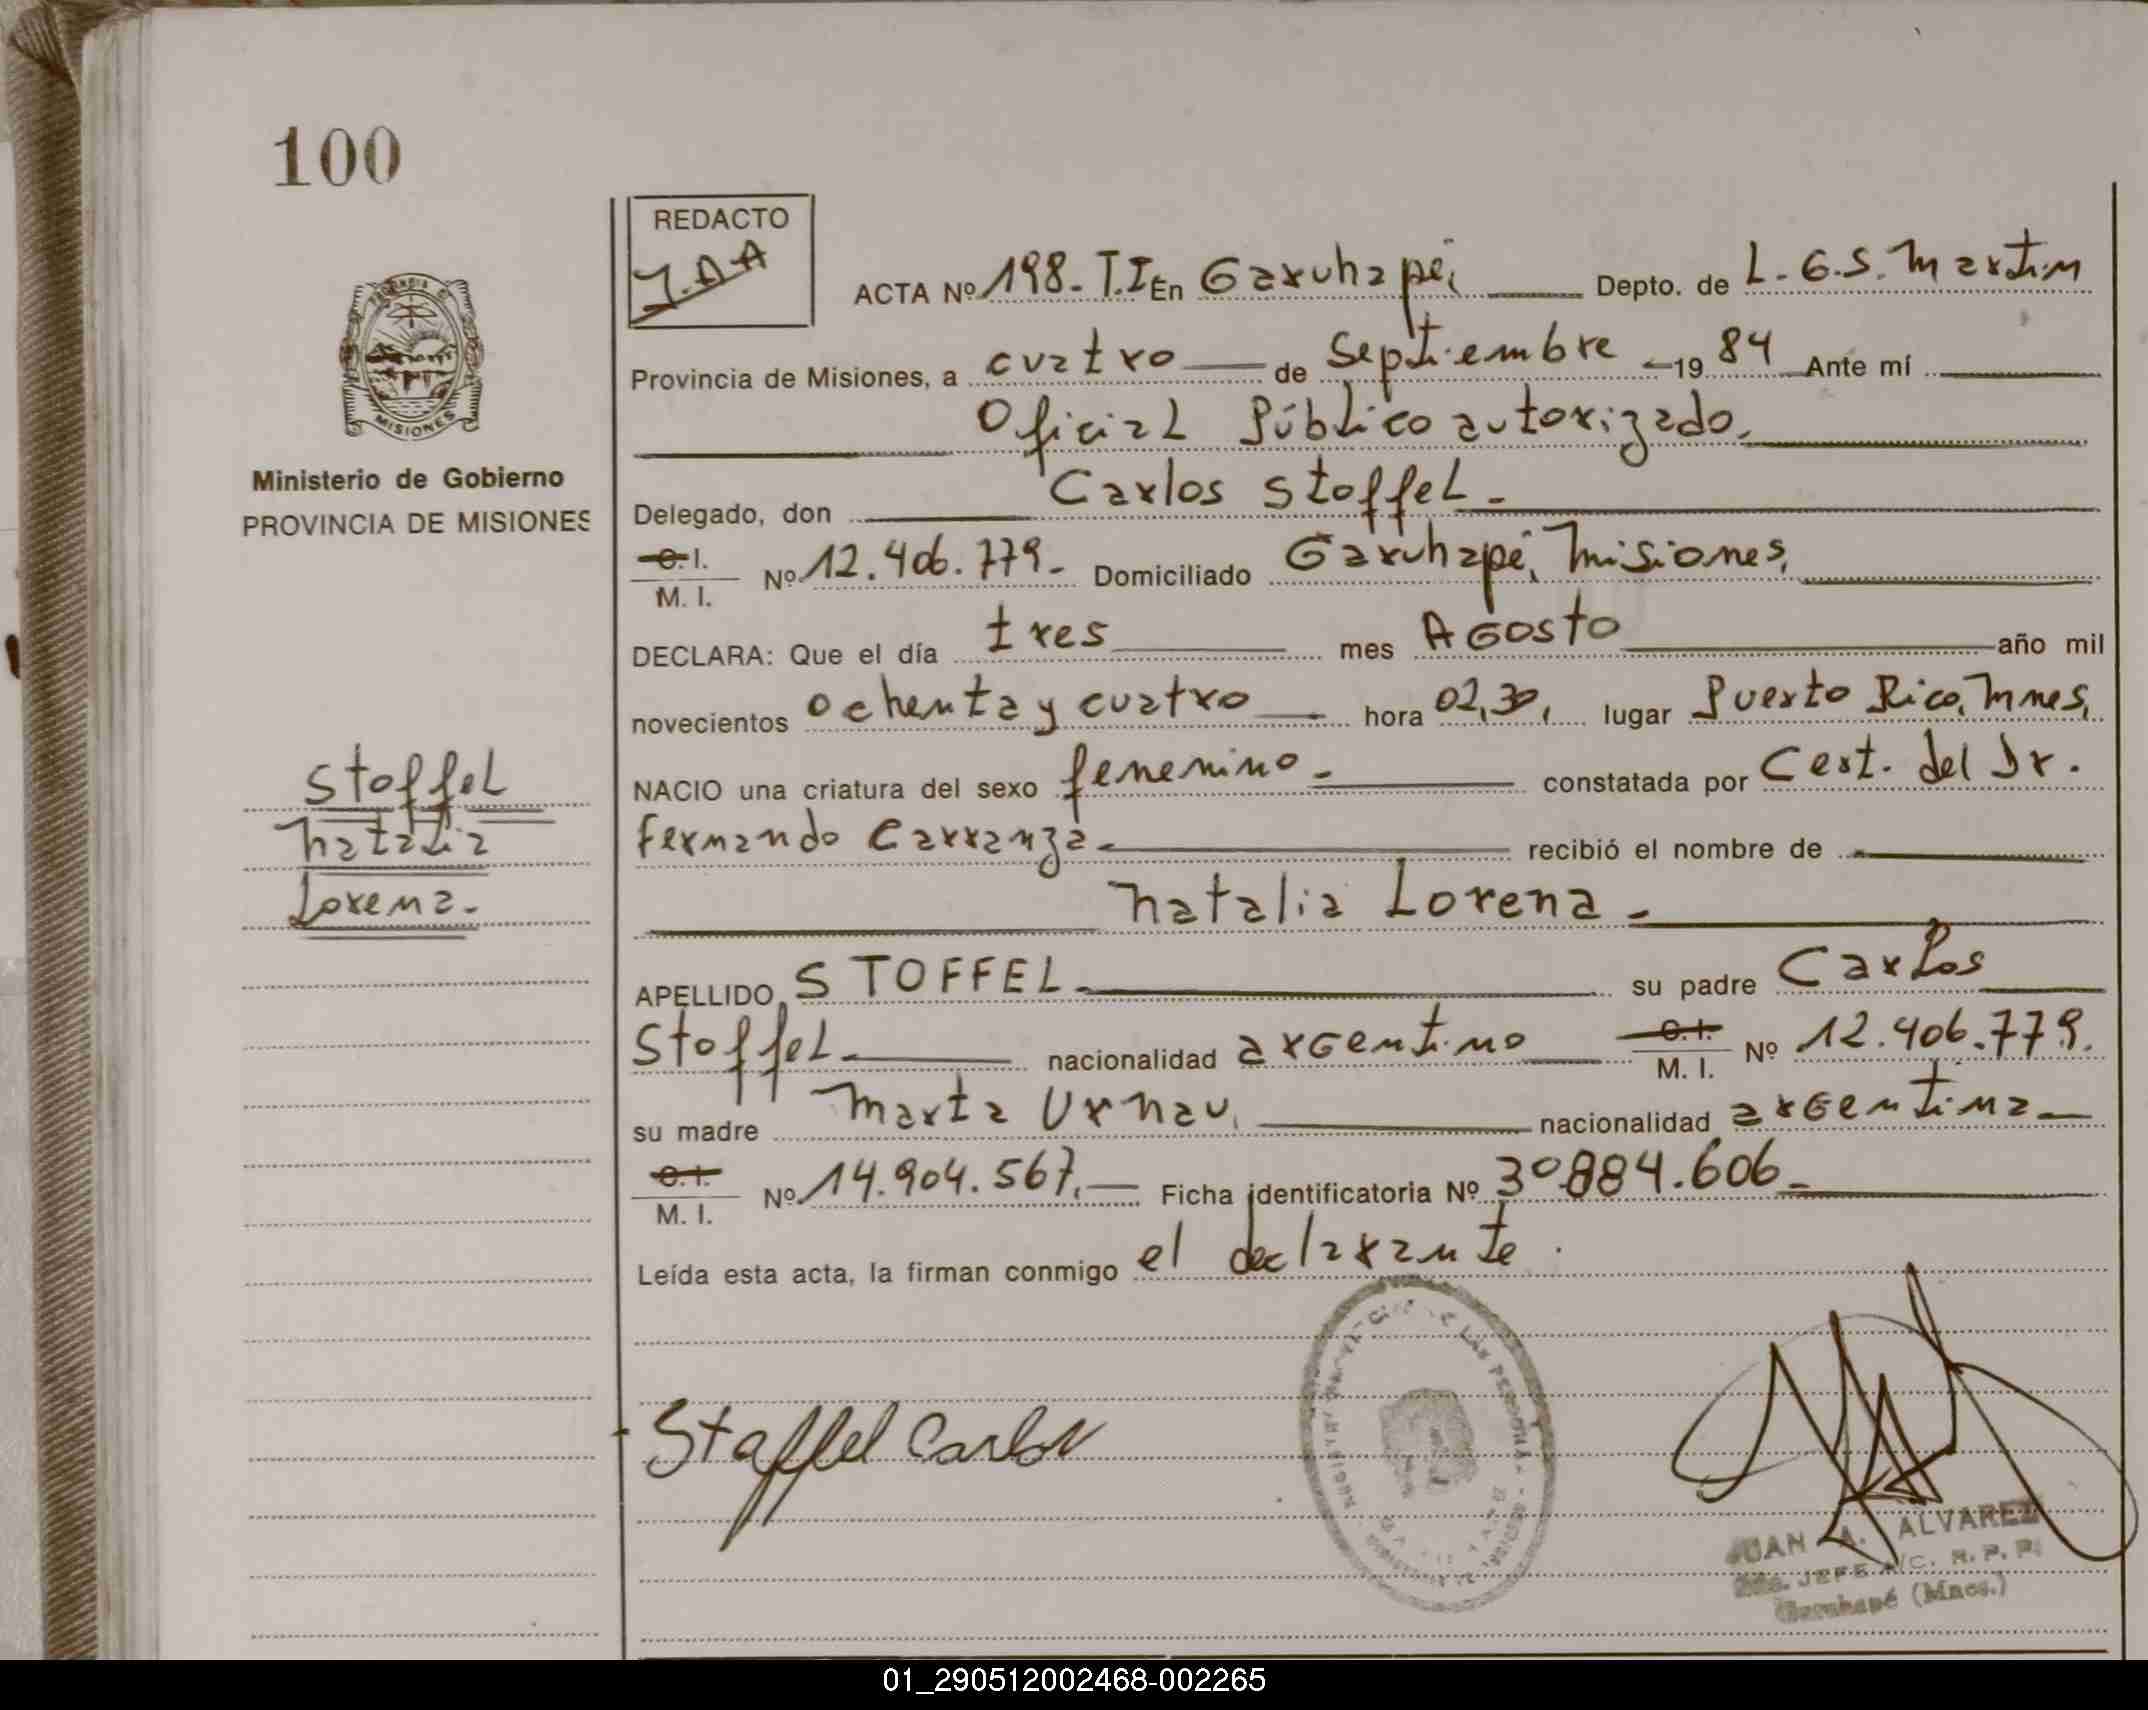 100
REDACTO
J.A.A
ACTA Nº 198-T.I En Garuhapé, Depto. de L.G.S. Martin
Provincia de Misiones, a cuatro de Septiembre 19 84 Ante mí
Oficial Público autorizado,
Delegado, don Carlos Stoffel.
C.I. M.I. Nº 12.406.779.- Domiciliado Garuhapé, Misiones,
DECLARA: Que el día tres mes Agosto año mil
novecientos ochenta y cuatro hora 02,30, lugar Puerto Rico, Mnes,
NACIO una criatura del sexo femenino.- constatada por Cert. del Dr.
Fernando Carranza.- recibió el nombre de
Natalia Lorena.-
APELLIDO, STOFFEL.- su padre Carlos
Stoffel.- nacionalidad argentino C.I. M.I. Nº 12.406.779.
su madre Marta Urnau, nacionalidad argentina
C.I. M.I. Nº 14.904.567,- Ficha identificatoria Nº 30.884.606.-
Leída esta acta, la firman conmigo el declarante.
Stoffel Carlos
JUAN A. ALVAREZ
JEFE A/C. R. P. P.
Garuhapé (Mnes.)
PROVINCIA D
MISIONES
Ministerio de Gobierno
PROVINCIA DE MISIONES
Stoffel
Natalia
Lorena.-
01_290512002468-002265